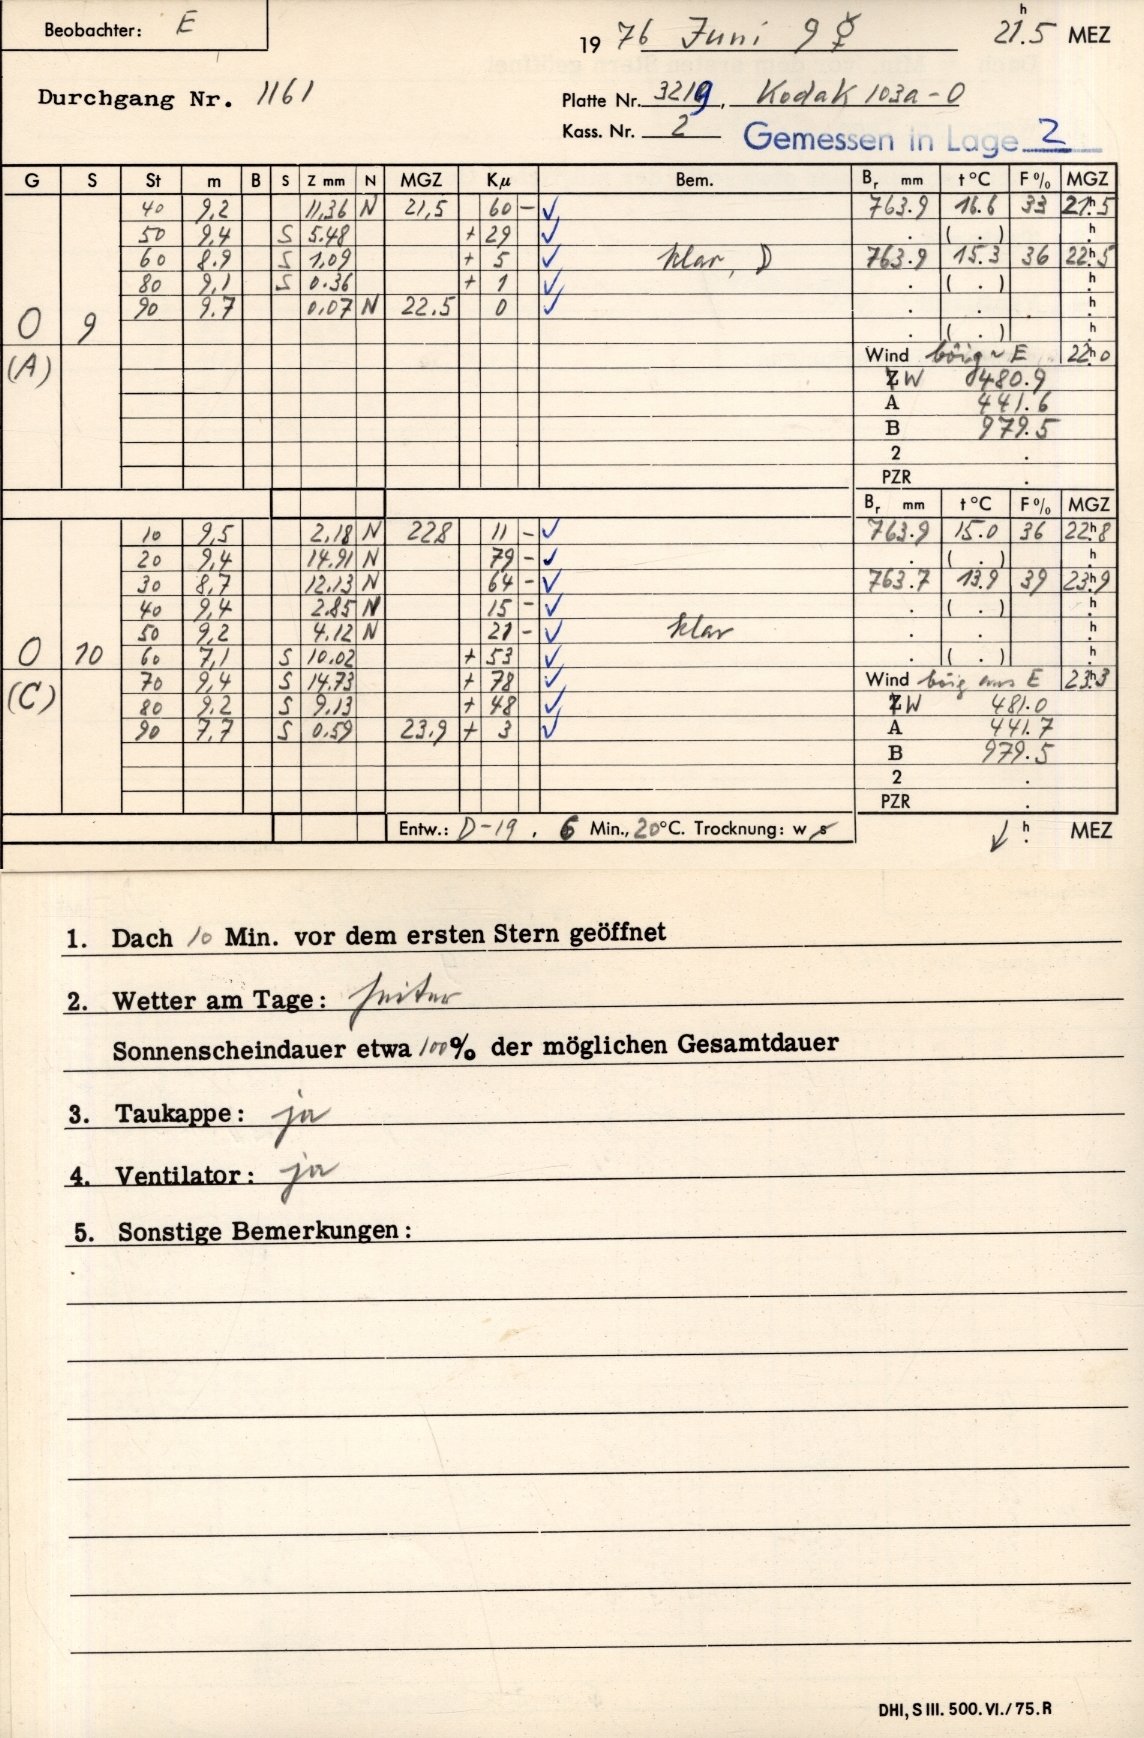 Beobachter: E
1976 Juni 9 ☿ 21.5 h MEZ
Durchgang Nr. 1161
Platte Nr. 3219, Kodak 103a-O
Kass. Nr. 2 Gemessen in Lage 2
G S St m B S Z mm N MGZ Kμ Bem. Br mm t °C F % MGZ
40 9,2 11,36 N 21,5 60 - ✓ 763.9 16.6 33 21.5 h
50 9,4 S 5.48 + 29 ✓ . ( . ) h
60 8.9 S 1,09 + 5 ✓ klar, D 763.9 15.3 36 22.5 h
80 9,1 S 0.36 + 1 ✓ . ( . ) h
O 9 90 9.7 0.07 N 22.5 0 ✓ . . h
. ( . ) h
(A) Wind böig ~ E 22.0 h
ZW 480.9
A 441.6
B 979.5
2 .
PZR .
Br mm t °C F % MGZ
10 9,5 2,18 N 22.8 11 - ✓ 763.9 15.0 36 22.8 h
20 9,4 14.91 N 79 - ✓ . ( . ) h
30 8,7 12.13 N 64 - ✓ 763.7 13.9 39 23.9 h
40 9,4 2.85 N 15 - ✓ . ( . ) h
50 9,2 4.12 N 21 - ✓ klar . . h
O 10 60 7,1 S 10.02 + 53 ✓ . ( . ) h
(C) 70 9,4 S 14.73 + 78 ✓ Wind böig aus E 23.3 h
80 9.2 S 9.13 + 48 ✓ ZW 481.0
90 7,7 S 0.59 23.9 + 3 ✓ A 441.7
B 979.5
2 .
PZR .
Entw.: D-19, 6 Min., 20°C. Trocknung: w s h . MEZ
1. Dach 10 Min. vor dem ersten Stern geöffnet
2. Wetter am Tage: heiter
Sonnenscheindauer etwa 100% der möglichen Gesamtdauer
3. Taukappe: ja
4. Ventilator: ja
5. Sonstige Bemerkungen:
DHI, S III. 500. VI./75. R